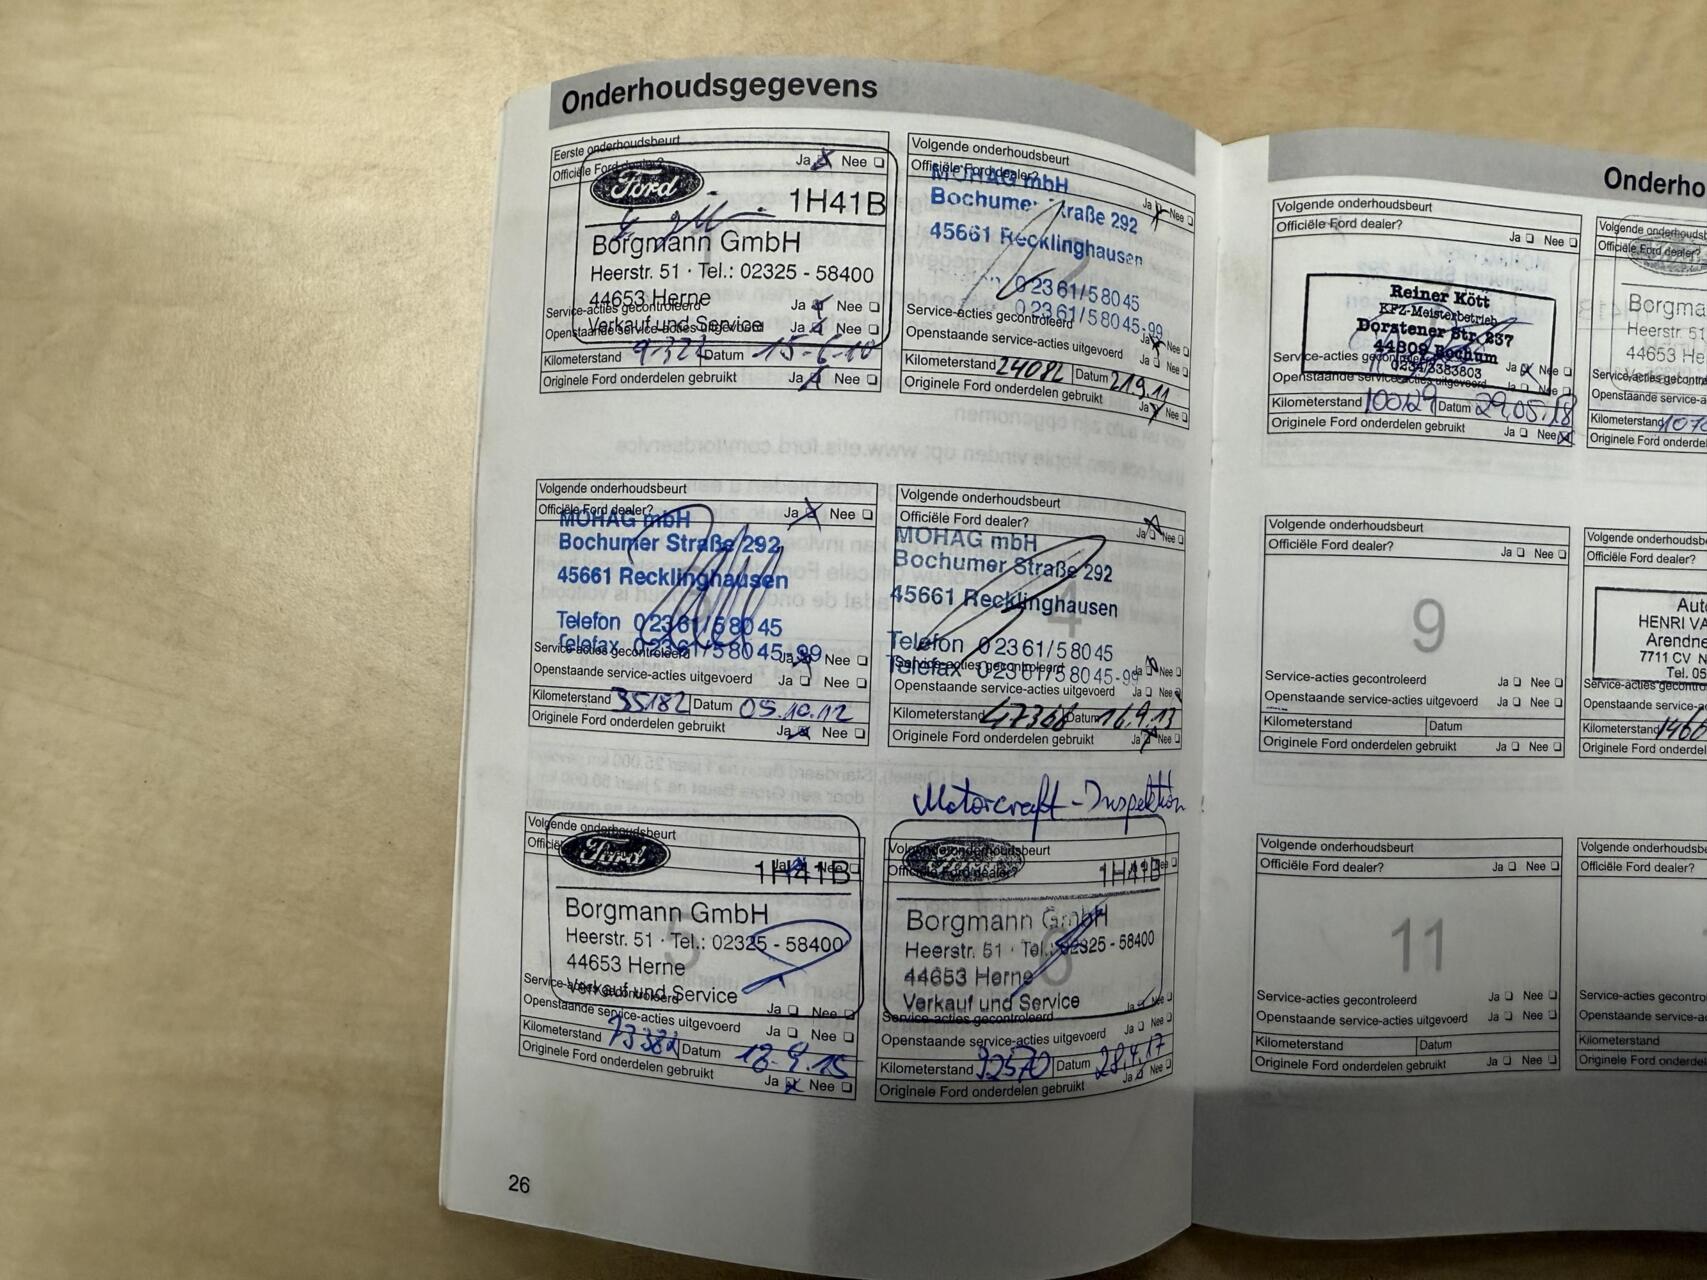 Onderhoudsgegevens
Eerste onderhoudsbeurt
Officiële Ford dealer? Ja Nee
Ford
1H41B
Borgmann GmbH
Heerstr. 51 · Tel.: 02325 - 58400
44653 Herne
Verkauf und Service
Service-acties gecontroleerd Ja Nee
Openstaande service-acties uitgevoerd Ja Nee
Kilometerstand Datum 15-6-10
Originele Ford onderdelen gebruikt Ja Nee
Volgende onderhoudsbeurt
Officiële Ford dealer? Ja Nee
MOHAG mbH
Bochumer Straße 292
45661 Recklinghausen
0 23 61/5 80 45
0 23 61/5 80 45-99
Service-acties gecontroleerd
Openstaande service-acties uitgevoerd Ja Nee
Kilometerstand 24082 Datum 21.9.11
Originele Ford onderdelen gebruikt Ja Nee
Volgende onderhoudsbeurt
Officiële Ford dealer? Ja Nee
MOHAG mbH
Bochumer Straße 292
45661 Recklinghausen
Telefon 0 23 61/5 80 45
Telefax 0 23 61/5 80 45-99
Service-acties gecontroleerd Ja Nee
Openstaande service-acties uitgevoerd Ja Nee
Kilometerstand 35182 Datum 05.10.12
Originele Ford onderdelen gebruikt Ja Nee
Volgende onderhoudsbeurt
Officiële Ford dealer? Ja Nee
MOHAG mbH
Bochumer Straße 292
4
45661 Recklinghausen
Telefon 0 23 61/5 80 45
Telefax 0 23 61/5 80 45-99
Service-acties gecontroleerd Ja Nee
Openstaande service-acties uitgevoerd Ja Nee
Kilometerstand 47368 Datum 16.9.13
Originele Ford onderdelen gebruikt Ja Nee
Motorcraft-Inspektion
Volgende onderhoudsbeurt
Ford
Ja Nee
1H41B
Borgmann GmbH
5
Heerstr. 51 · Tel.: 02325 - 58400
44653 Herne
Verkauf und Service
Service-acties gecontroleerd Ja Nee
Openstaande service-acties uitgevoerd Ja Nee
Kilometerstand 73382 Datum
Originele Ford onderdelen gebruikt Ja Nee
Volgende onderhoudsbeurt
Officiële Ford dealer?
1H41B
Borgmann GmbH
6
Heerstr. 51 · Tel.: 02325 - 58400
44653 Herne
Verkauf und Service
Service-acties gecontroleerd Ja Nee
Openstaande service-acties uitgevoerd Ja Nee
Kilometerstand 92570 Datum 28.4.17
Originele Ford onderdelen gebruikt Ja Nee
26
Onderho
Volgende onderhoudsbeurt
Officiële Ford dealer? Ja Nee
Reiner Kött
KFZ-Meisterbetrieb
Dorstener Str. 237
44809 Bochum
0234/3383803
Service-acties gecontroleerd Ja Nee
Openstaande service-acties uitgevoerd Ja Nee
Kilometerstand 100129 Datum 29.05.18
Originele Ford onderdelen gebruikt Ja Nee
Volgende onderhoudsb
Officiële Ford dealer?
Borgma
Heerstr. 51
44653 He
Service-acties gecontro
Openstaande service-a
Kilometerstand 1070
Originele Ford onderd
Volgende onderhoudsbeurt
Officiële Ford dealer? Ja Nee
9
Service-acties gecontroleerd Ja Nee
Openstaande service-acties uitgevoerd Ja Nee
Kilometerstand Datum
Originele Ford onderdelen gebruikt Ja Nee
Volgende onderhoudsb
Officiële Ford dealer?
Aut
HENRI VA
Arendne
7711 CV N
Tel. 05
Service-acties gecontro
Openstaande service-a
Kilometerstand 1460
Originele Ford onderdel
Volgende onderhoudsbeurt
Officiële Ford dealer? Ja Nee
11
Service-acties gecontroleerd Ja Nee
Openstaande service-acties uitgevoerd Ja Nee
Kilometerstand Datum
Originele Ford onderdelen gebruikt Ja Nee
Volgende onderhoudsbe
Officiële Ford dealer?
Service-acties gecontro
Openstaande service-a
Kilometerstand
Originele Ford onderdel